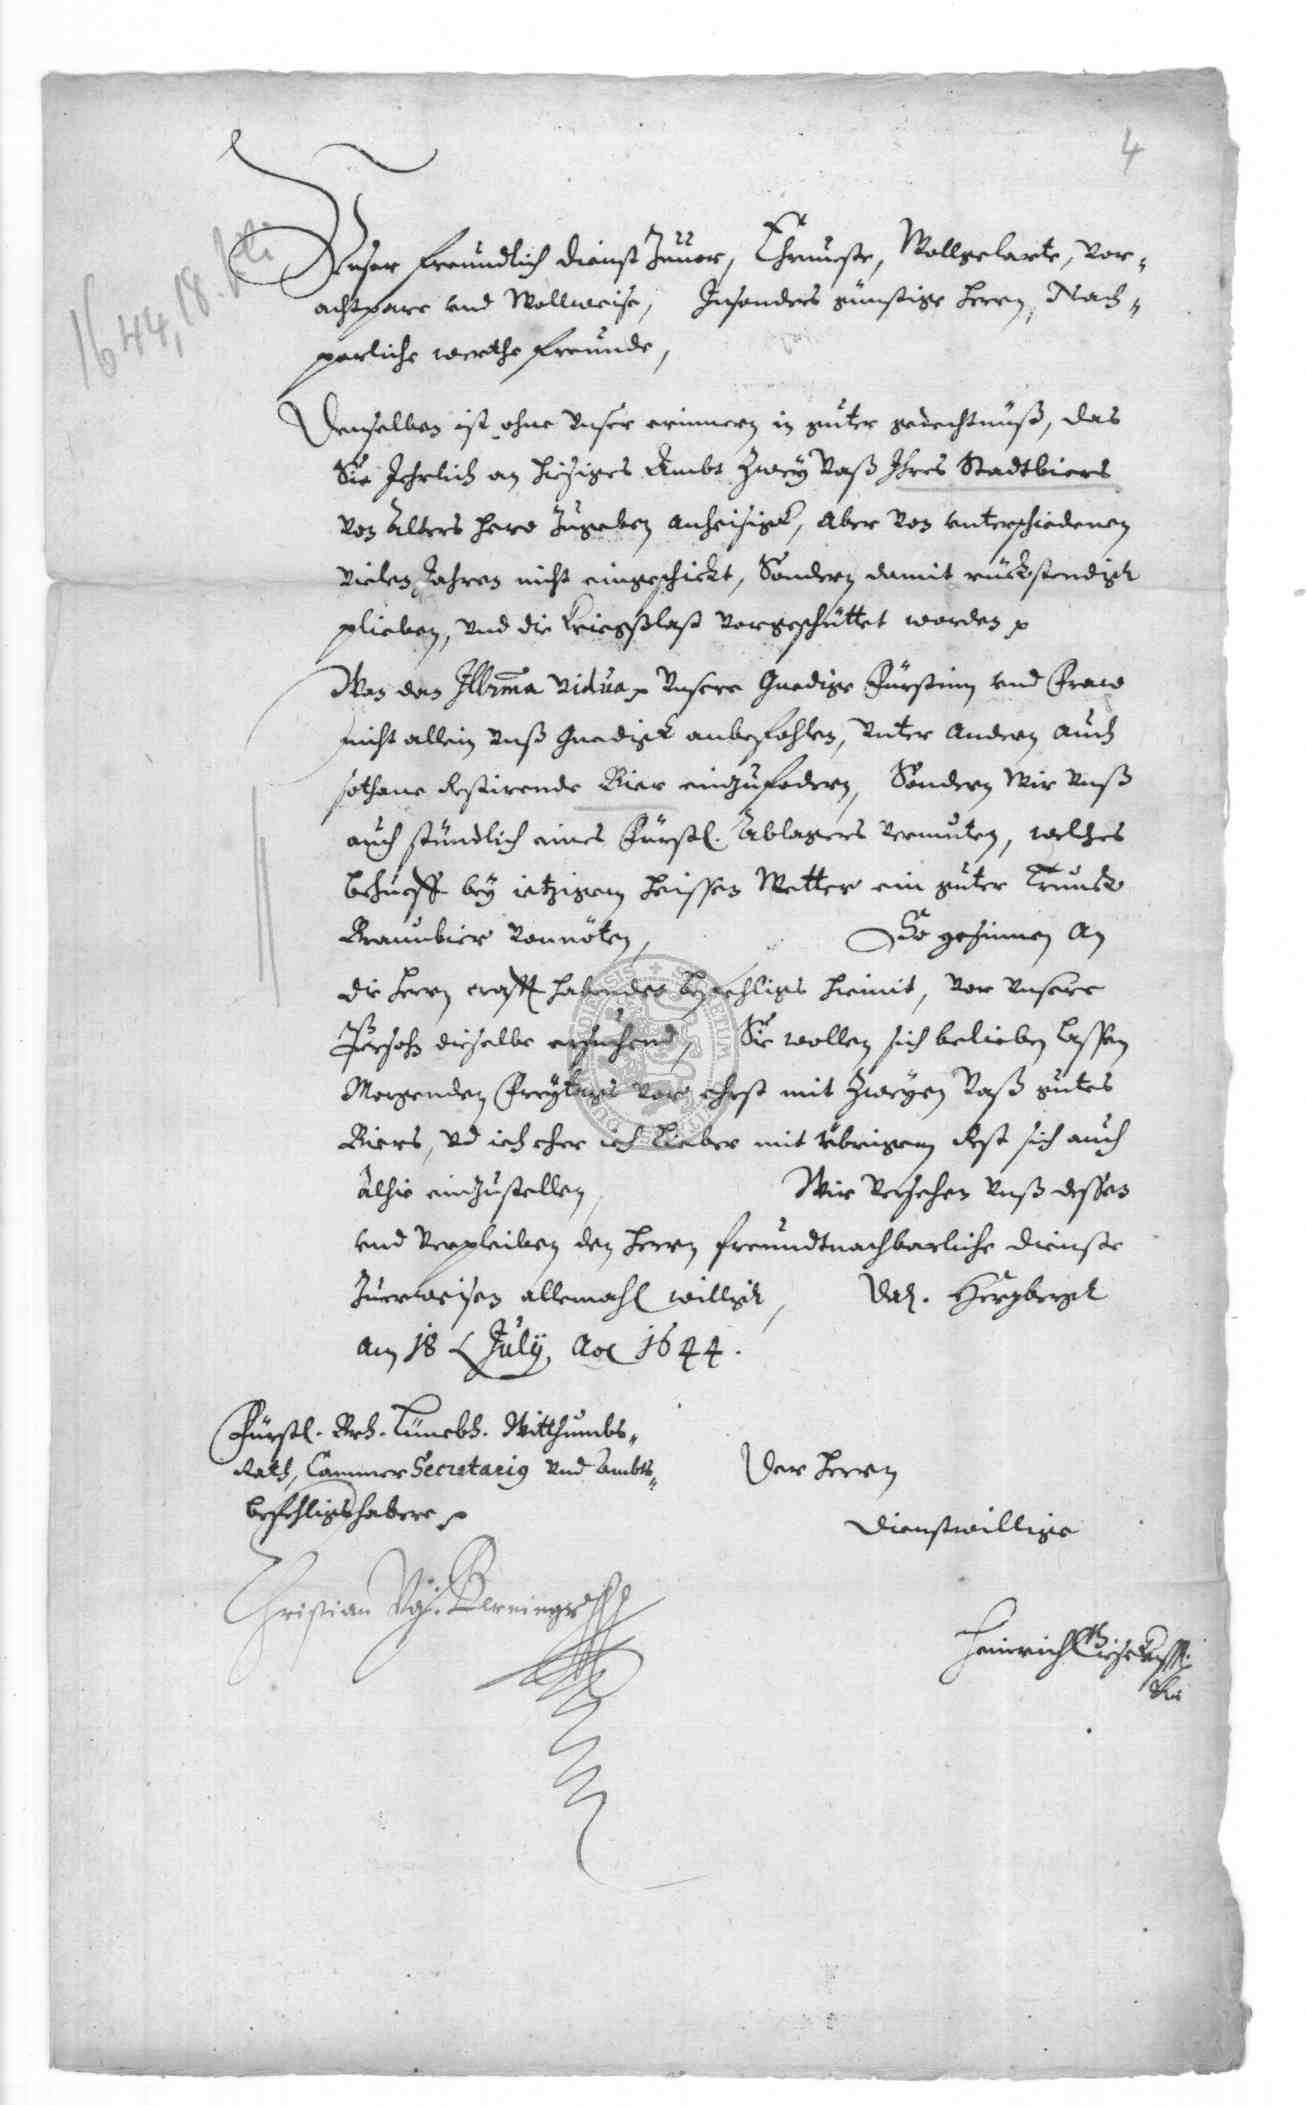 4
1644, 18. Juli
Unser freundlich dienst Zuuor, Ehrnueste, Wollgelarte, vor-
achtpare und Wollweise, Insonders günstige Herrn, Nach-
parliche werthe freunde,
Denselben ist ohne unser erinnern in guter gedechtnuß, das
Sie Jehrlich an hiesiges Ambt Zwey Vaß Ihres Stadtbiers
von Alters hero Zugeben anheisigk, aber von unterschiedenen
vielen Jahren nicht eingeschickt, Sondern damit rückstendigk
plieben, und die Kriegßlast vorgeschüttet worden
Wan dan Illrma Vidua Unsere Gnedige Fürstinn und Fraw
nicht allein unß Gnedigk anbefohlen, unter Andern auch
sothane Restirende Bier einzufodern, Sondern Wir unß
auch stündlich eines Fürstl. Ablagers vermuten, welches
behueff bey ietzigem heissen Wetter ein guter Trunck
Braunbier vonnöten, So gesinnen An
die Herrn crafft habenden befehliges hiemit, vor unsere
Persohn dieselbe ersuchend, Sie wollen sich belieben lassen
Morgenden Freytags vor ehrst mit Zweyen Vaß gutes
Biers, und ieh eher ieh Lieber mit übrigem Rest sich auch
alhie einzustellen, Wir versehen unß dessen
und verpleiben den Herrn freundtnachbarliche dienste
Zuerweisen allemahl willigk, Dat. Hertzbergk
am 18 July Ao 1644.
Fürstl. Br. Lüneb. Witthumbs-
Rath, Cammer Secretarius und Ambts-
befehligshabere
Der Herrn
Dienstwillige
Christian
Heinrich